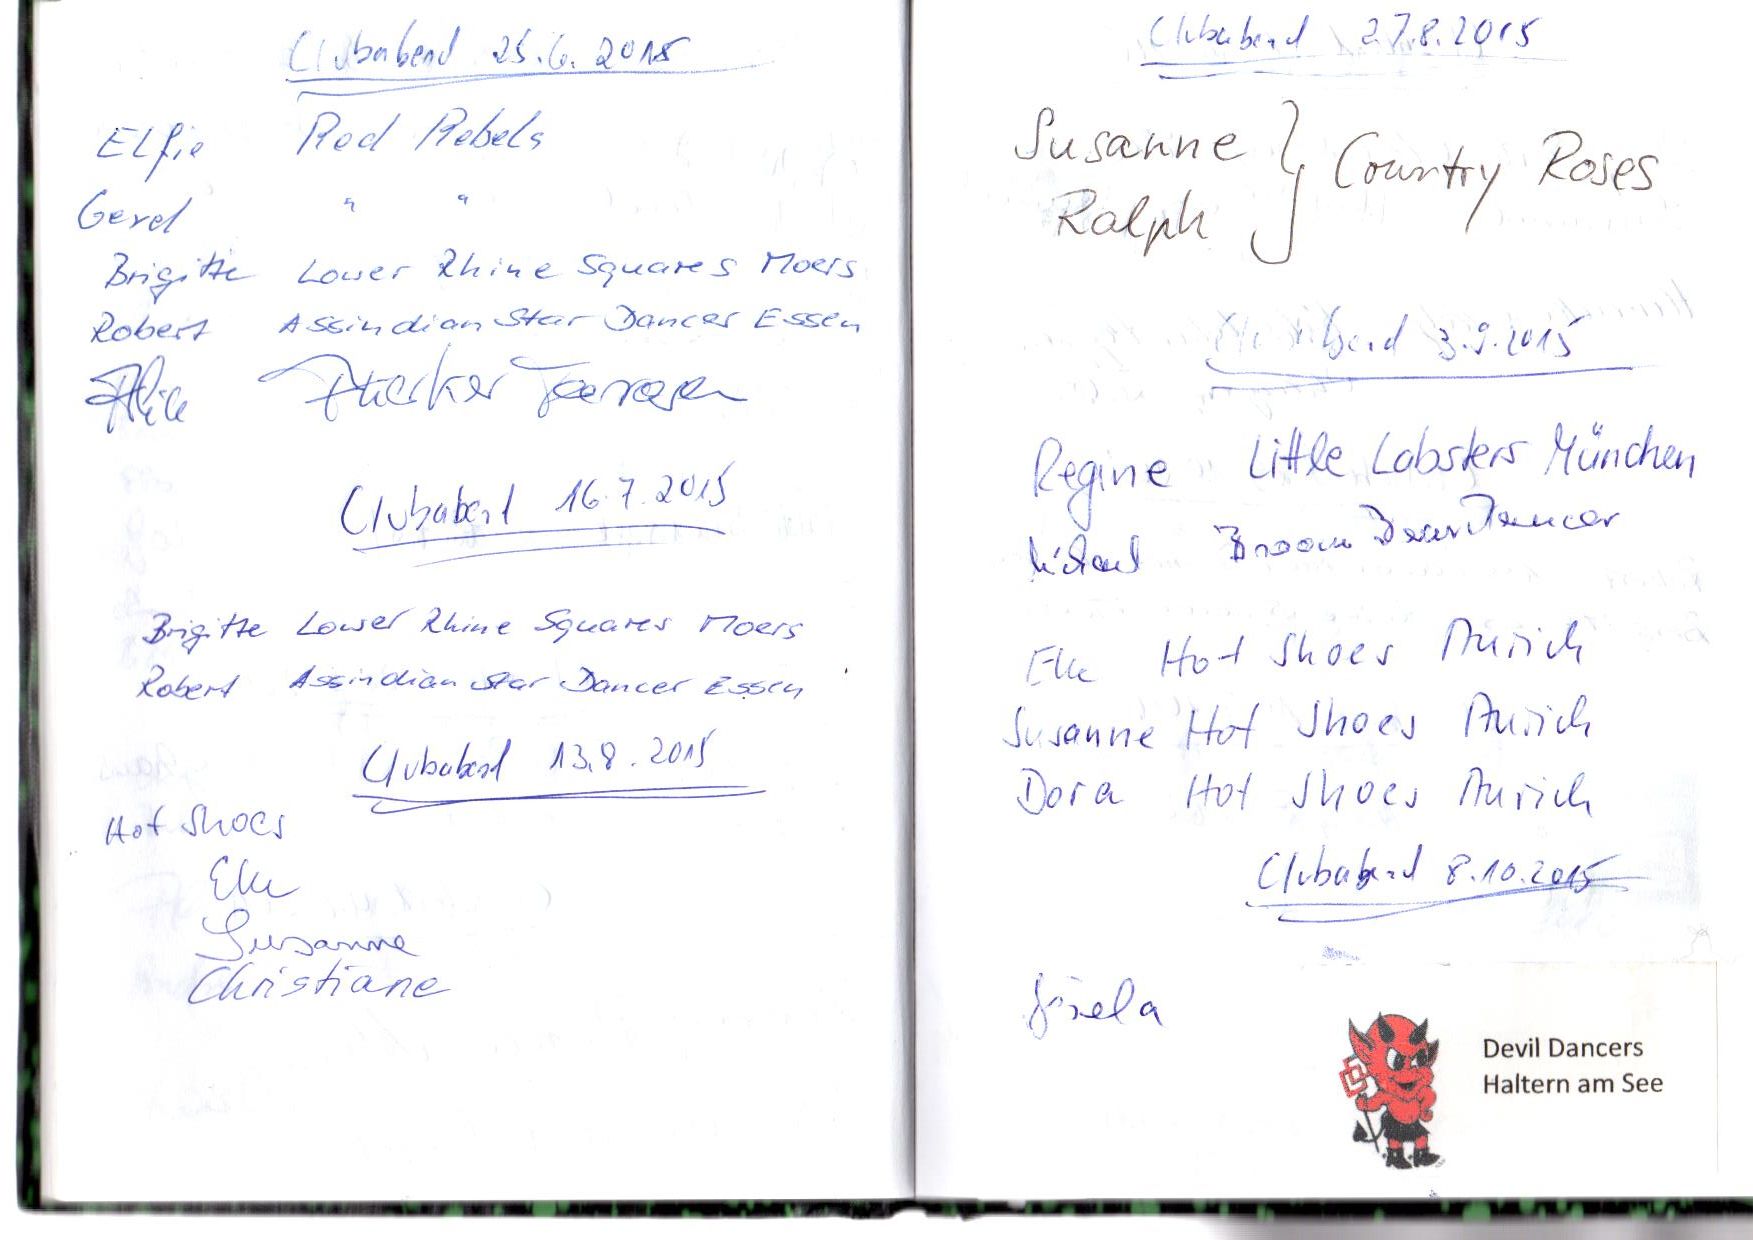 Clubabend 25.6.2015
Elfie Red Rebels
Gerd " "
Brigitte Lower Rhine Squares Moers
Robert Assindian Star Dancer Essen
Clubabend 16.7.2015
Brigitte Lower Rhine Squares Moers
Robert Assindian Star Dancer Essen
Clubabend 13.8.2015
Hot Shoes
Elke
Susanne
Christiane
Clubabend 27.8.2015
Susanne } Country Roses
Ralph
Clubabend 3.9.2015
Regine Little Lobsters München
Michael Dancer
Elke Hot Shoes Aurich
Susanne Hot Shoes Aurich
Dora Hot Shoes Aurich
Clubabend 8.10.2015
Gisela
Devil Dancers
Haltern am See